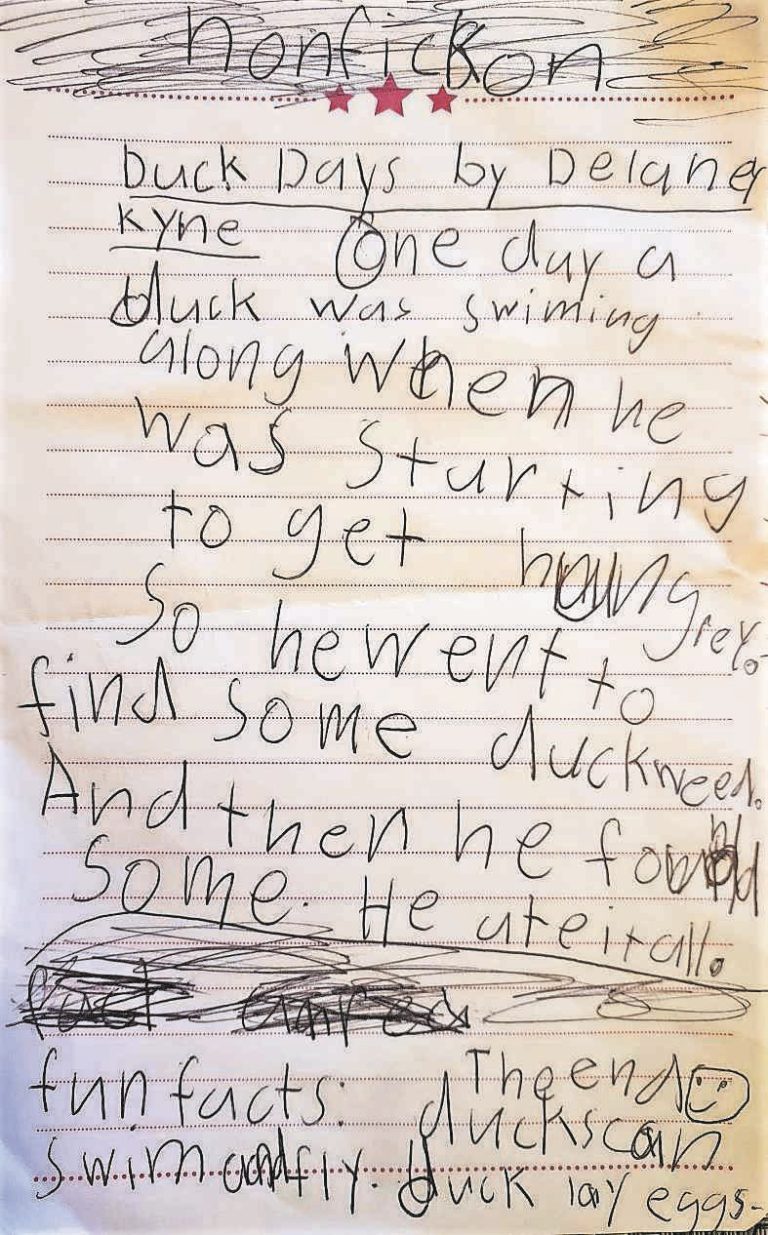 nonfickon
Duck Days by Delaney
Kyne One day a
duck was swiming
along when he
was starting
to get hungrey.
So he went to
find some duckweed.
And then he found
some. He ate it all.
The end
fun facts: ducks can
swim and fly. duck lay eggs.